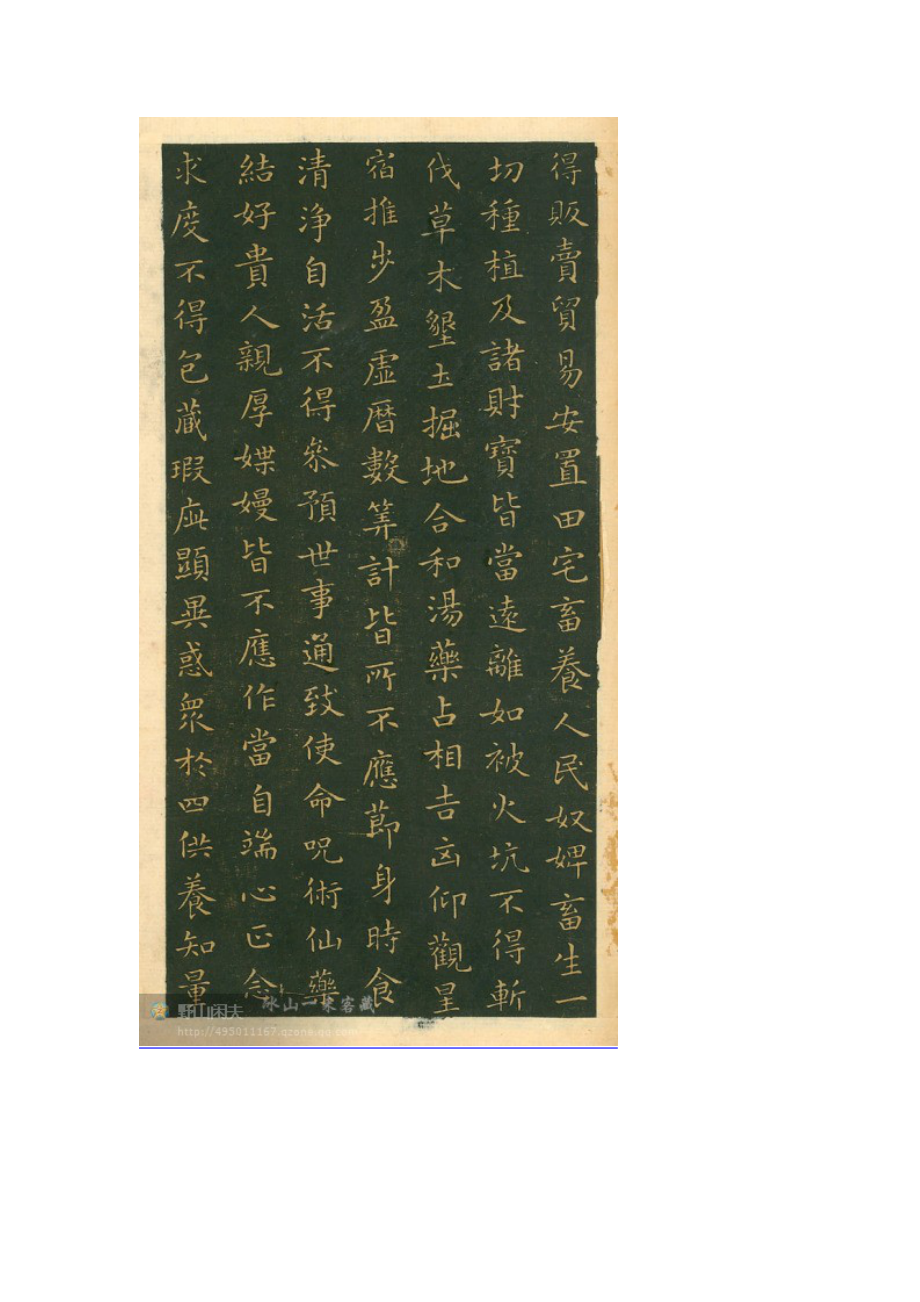 得販賣貿易安置田宅畜養人民奴婢畜生一
切種植及諸財寶皆當遠離如被火坑不得斬
伐草木墾土掘地合和湯藥占相吉凶仰觀星
宿推步盈虛曆數筭計皆所不應節身時食
清淨自活不得參預世事通致使命呪術仙藥
結好貴人親厚媟嫚皆不應作當自端心正念
求度不得包藏瑕疵顯異惑眾於四供養知量
野山困夫
冰山一案客藏
http://495011167.qzone.qq.com